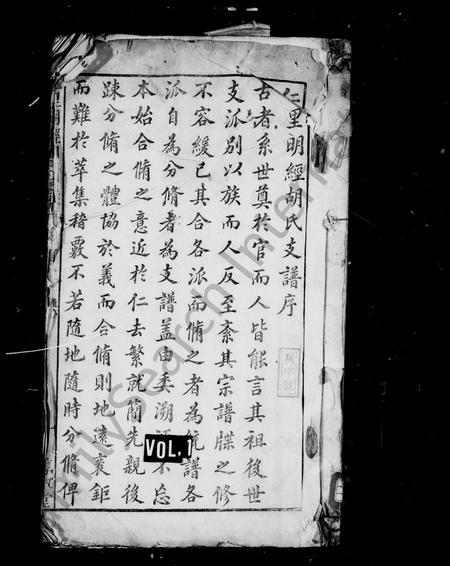 仁里明經胡氏支譜序
古者系世奠於官而人皆能言其祖後世
支派別以族而人反至紊其宗譜牒之修
不容緩已其合各派而脩之者為統譜各
派自為分脩者為支譜蓋由委溯源不忘
本始合脩之意近於仁去繁就簡先親後
踈分脩之體協於義而合脩則地遠袤鉅
而難於萃集稽覈不若隨地隨時分脩俾
VOL. 1